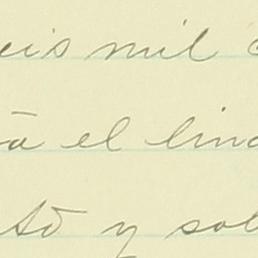 eis mil
a el lind
tó y sol